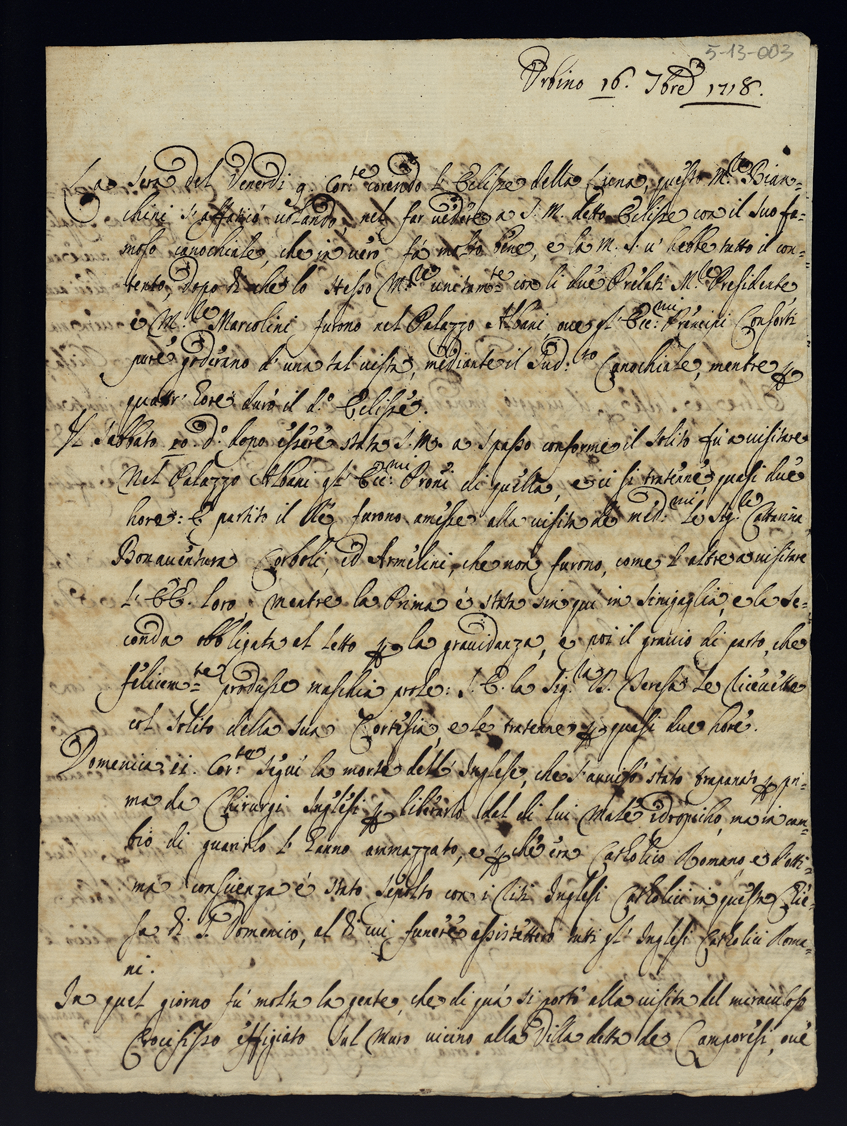 5-13-003
Urbino 16. 7bre 1718.
La sera del Venerdi 9. Corte correndo l'Eclisse della Luna, questo M.r Bian=
chini s'affaticò urtando, nel far vedere a S. M. detto Eclisse con il suo fa=
moso canochiale, che in vero fà molto bene, e la M. S. v'hebbe tutto il con=
tento, dopo di che lo stesso M.re unitamte con li due Prelati M.re Presidente
è M.re Marcolini furono nel Palazzo Albani ove gl'Ecc.mi Principi Consorti
pure goderano d'una tal vista, mediante il Sud.to Canochiale, mentre p
quatr'hore durò il d.o Eclisse.
Il Sabbato 10. D.o dopo essere stata S. M. a spasso conforme il solito fù a visitare
nel Palazzo Albani gl'Ecc.mi Proni di quella, e ci si tratenne quasi due
hore: E partito il Rè furono amesse alla visita de med.mi le Sig.re Cattarina
Bonaventura Corboli, ed Armelini, che non furono, come l'altre a visitare
l'EE. loro mentre la Prima è stata sin qui in Sinigaglia, e la Se=
conda obbligata al letto p la gravidanza, e poi il gravio di parto, che
felicemte produsse maschia prole: S. E. la Sig.ra D. Teresa le ricevette
col solito della sua Cortesia, e le tratenne p quasi due hore.
Domenica 11. Corte seguì la morte dell'Inglese, che s'avvisò stato trapanato p pri=
ma da Chirurgi Inglesi p liberarlo dal di lui male idropicho, ma in cam=
bio di guarirlo l'hanno ammazzato, e pche era Catholico Romano e d'otti=
ma conscienza è stato sepolto con i Riti Inglesi Catholici in questa Chie=
sa di S. Domenico, al di cui funere assistettero tutti gl'Inglesi Catholici Roma=
ni.
In quel giorno fù molta la gente, che di quà si portò alla visita del miraculoso
Crocifisso effigiato sul Muro vicino alla Villa detta de Camporesi, ove